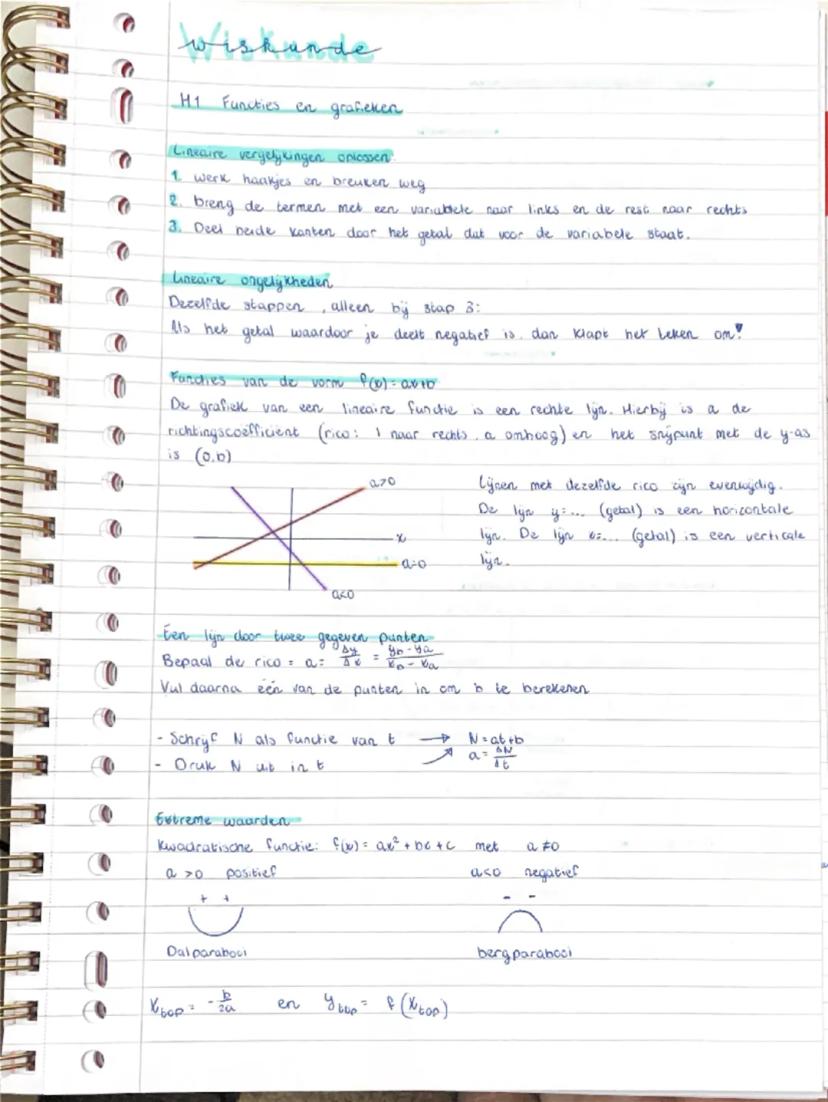 Wiskunde
H1 Functies en grafieken
Lineaire vergelijkingen oplossen
1. werk haakjes en breuken weg
2. breng de termen met een variabele naar links en de rest naar rechts
3. Deel beide kanten door het getal dat voor de variabele staat.
Lineaire ongelijkheden
Dezelfde stappen, alleen bij stap 3:
Als het getal waardoor je deelt negatief is, dan klapt het teken om!
Functies van de vorm f(x)=ax+b
De grafiek van een lineaire functie is een rechte lijn. Hierbij is a de
richtingscoëfficiënt (rico: 1 naar rechts, a omhoog) en het snijpunt met de y-as
is (0,b)
a>0
x
a=0
a<0
Lijnen met dezelfde rico zijn evenwijdig.
De lijn y=... (getal) is een horizontale
lijn. De lijn x=... (getal) is een verticale
lijn.
Een lijn door twee gegeven punten
Bepaal de rico = a = Δy/Δx = (yb - ya)/(xb - xa)
Vul daarna één van de punten in om b te berekenen
- Schrijf N als functie van t → N=at+b
- Druk N uit in t ↗ a = ΔN/Δt
Extreme waarden
Kwadratische functie: f(x) = ax² + bc + c met a ≠ 0
a > 0 positief a<0 negatief
+ + - -
Dalparabool bergparabool
xtop = - b/2a en ytop = f(xtop)